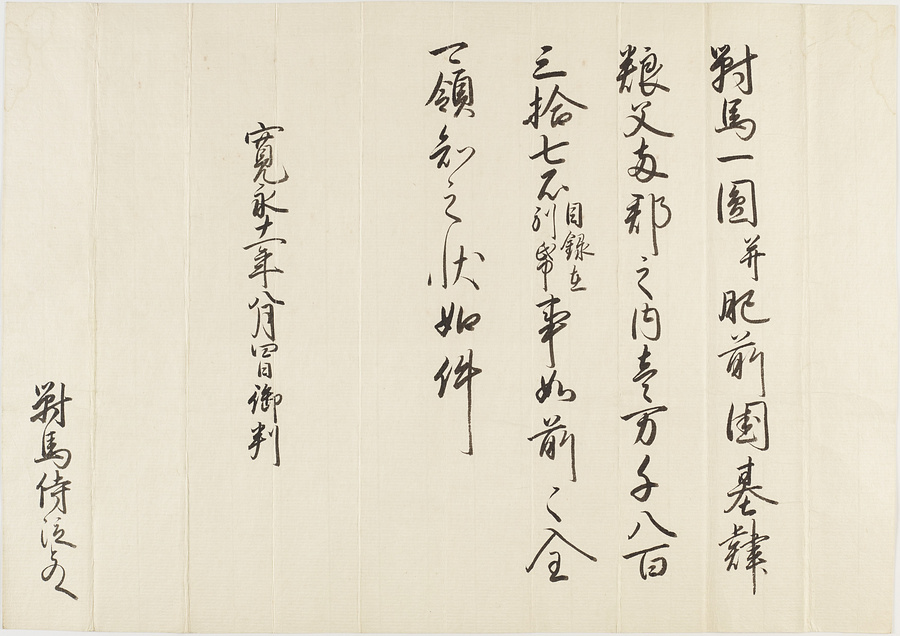 對馬一圓并肥前國基肄
粮父両郡之内壱万千八百
三拾七石目録在別帋事如前々全
可領知之状如件
寛永十一年八月四日御判
對馬侍従とのへ